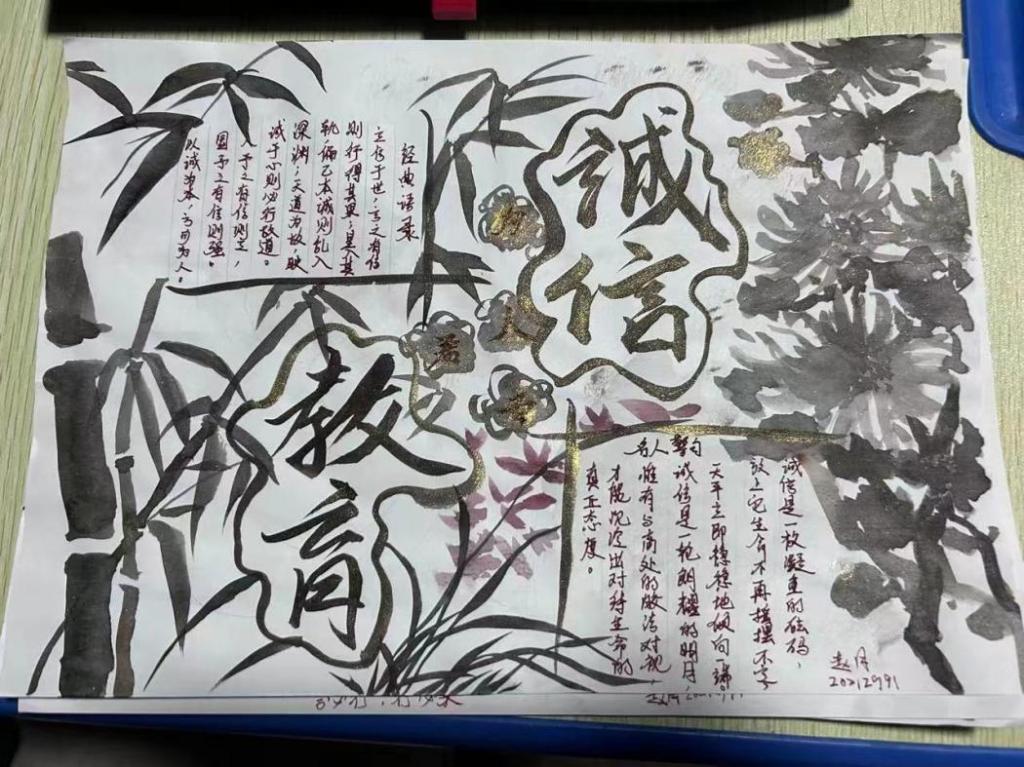 誠
信
教
育
经典语录
立存于世,言之有信
则行得其果;莫其
轨,偏己本诚则乱入
深渊;天道为故,驶
诚于心则必行故道。
人予之有信则立,
国予之有信则强。
以诚为本,方可为人。
人
若
名人警句
诚信是一枚凝重的砝码,
放上它生命不再摇摆不定
天平立即稳稳地倾向一端。
诚信是一轮朗耀的明月,
惟有与高处的皎洁对视,
才能沉淀出对待生命的
真正态度。
赵月
20212991